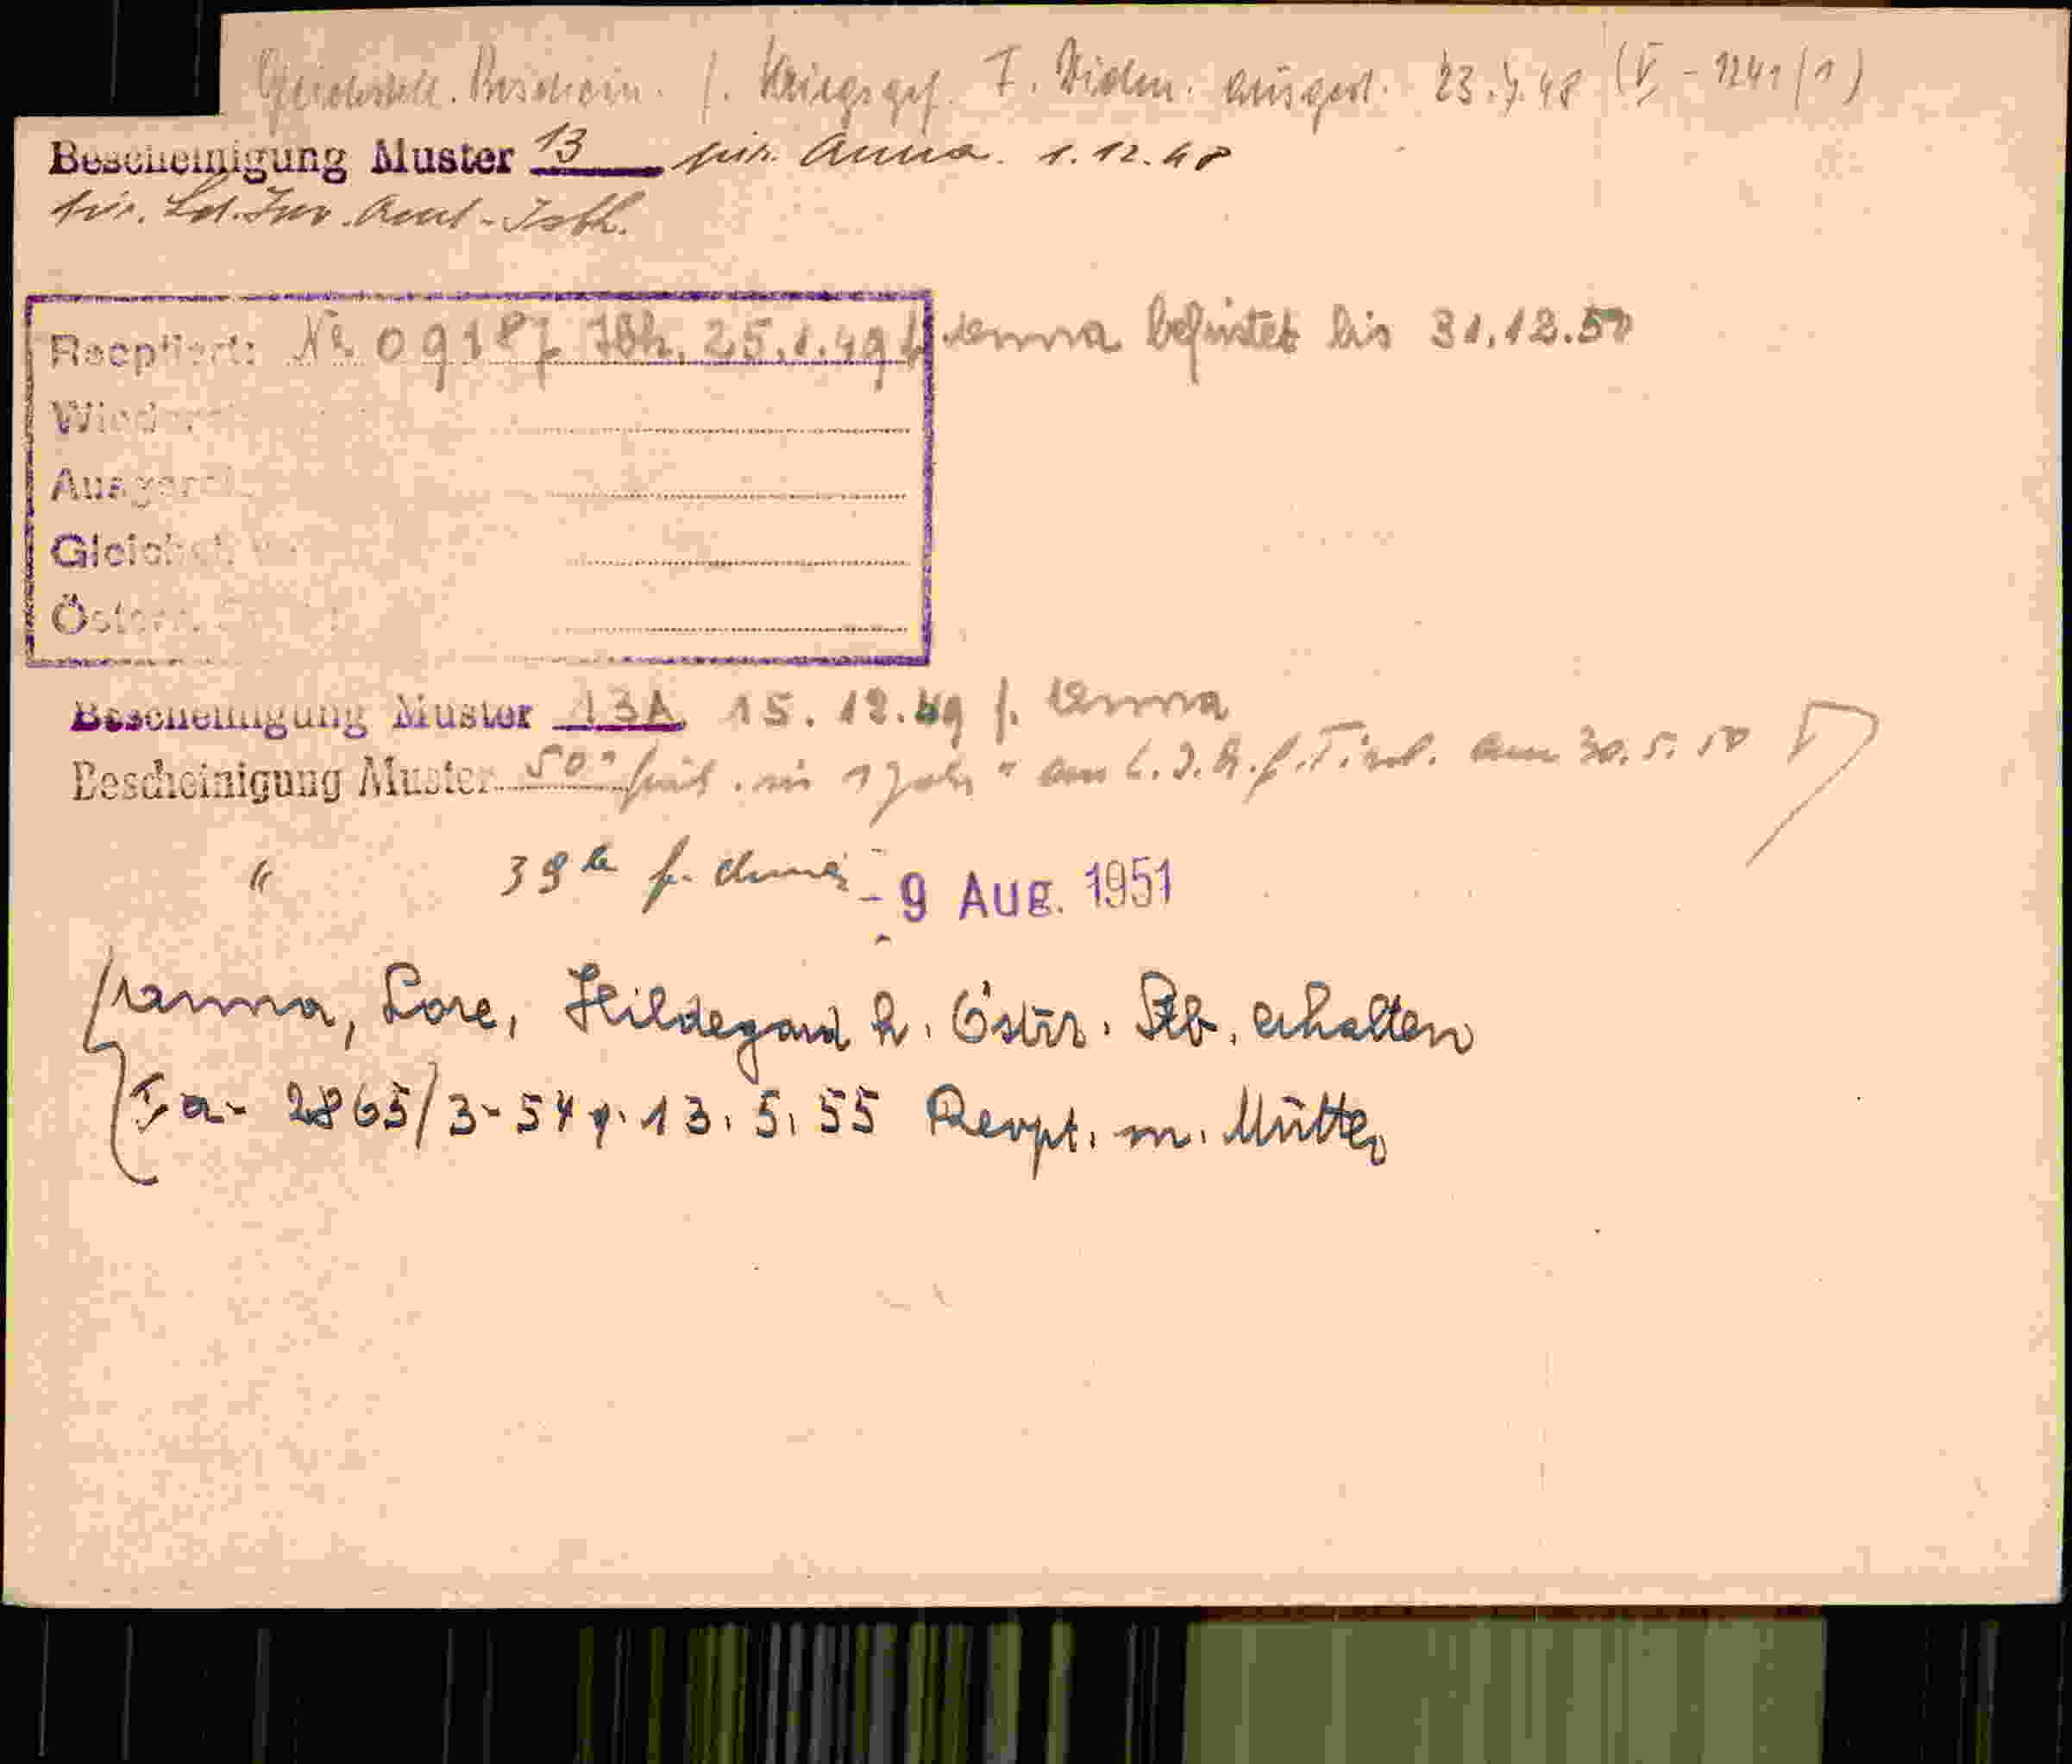 Gleichstell. Beschein. f. Kriegsgef. F. Widm. ausgest. 23.7.48 (V - 1241/1)
Bescheinigung Muster 13 für Anna. 1.12.48
für. Ld. Inv. Amt - Isbk.
Reoptiert: № 09187 Ibk. 25.1.49 f. Anna befristet bis 31.12.50
Wieder
Ausgereist
Gleichst.
Österr.
Bescheinigung Muster 13A 15.12.49 f. Anna
Bescheinigung Muster 50 1 Jahr am f. Tirol. am 30.5.50
" 39 f. - 9 Aug. 1951
Anna, Lore, Hildegard h. Östrr. Stb. erhalten
Ia- 2865/3-54 v. 13.5.55 Reopt. m. Mutter